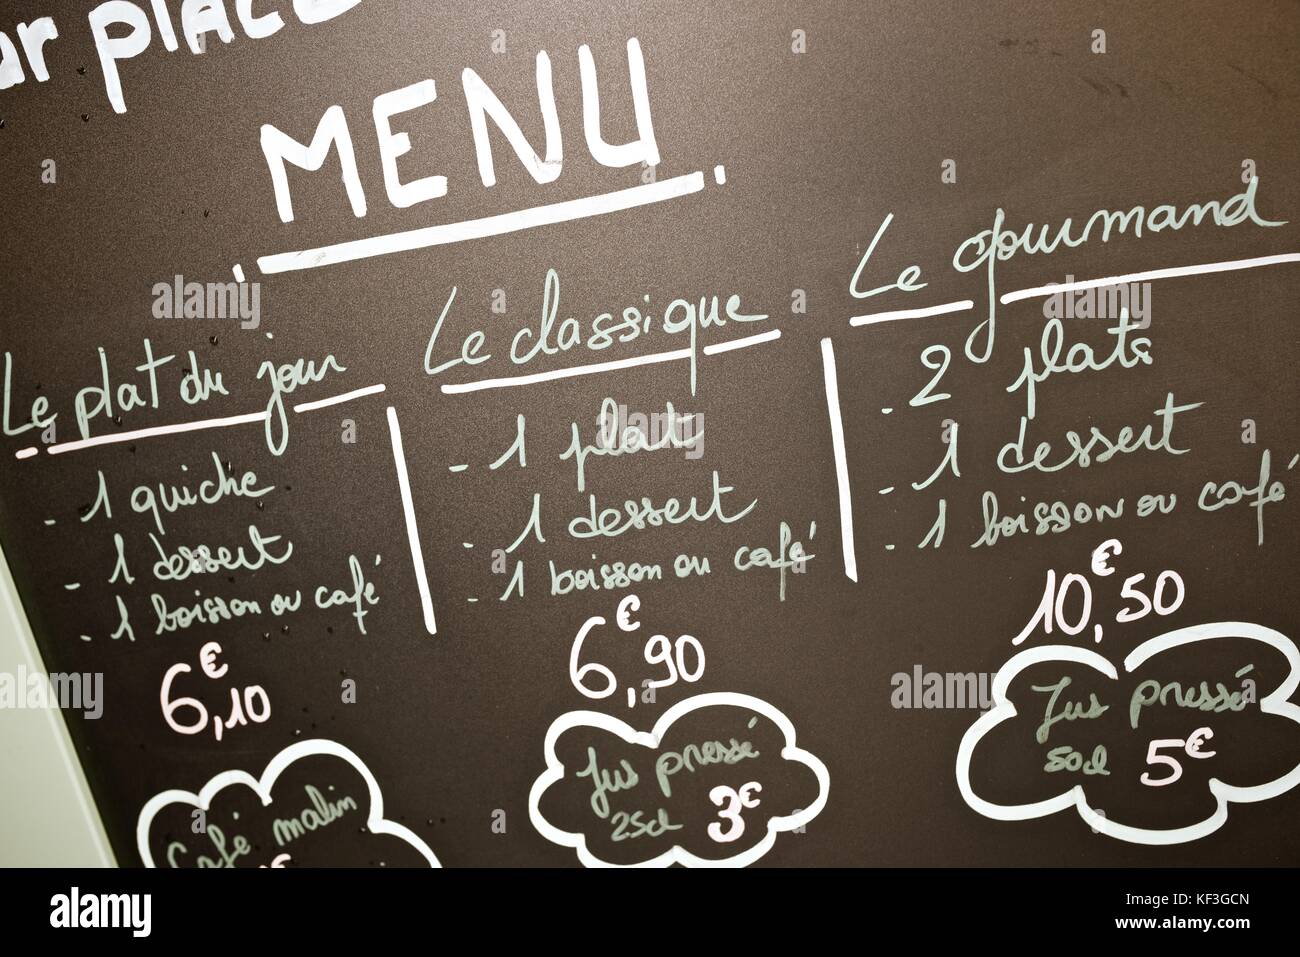 ar PLACE
MENU
Le plat du jour
- 1 quiche
- 1 dessert
- 1 boisson ou café
6€,10
Le classique
- 1 plat
- 1 dessert
- 1 boisson ou café
6€,90
Le gourmand
- 2 plats
- 1 dessert
- 1 boisson ou café
10€,50
Café malin
€
Jus pressé
25cl 3€
Jus pressé
50cl 5€
alamy
Image ID: KF3GCN
www.alamy.com